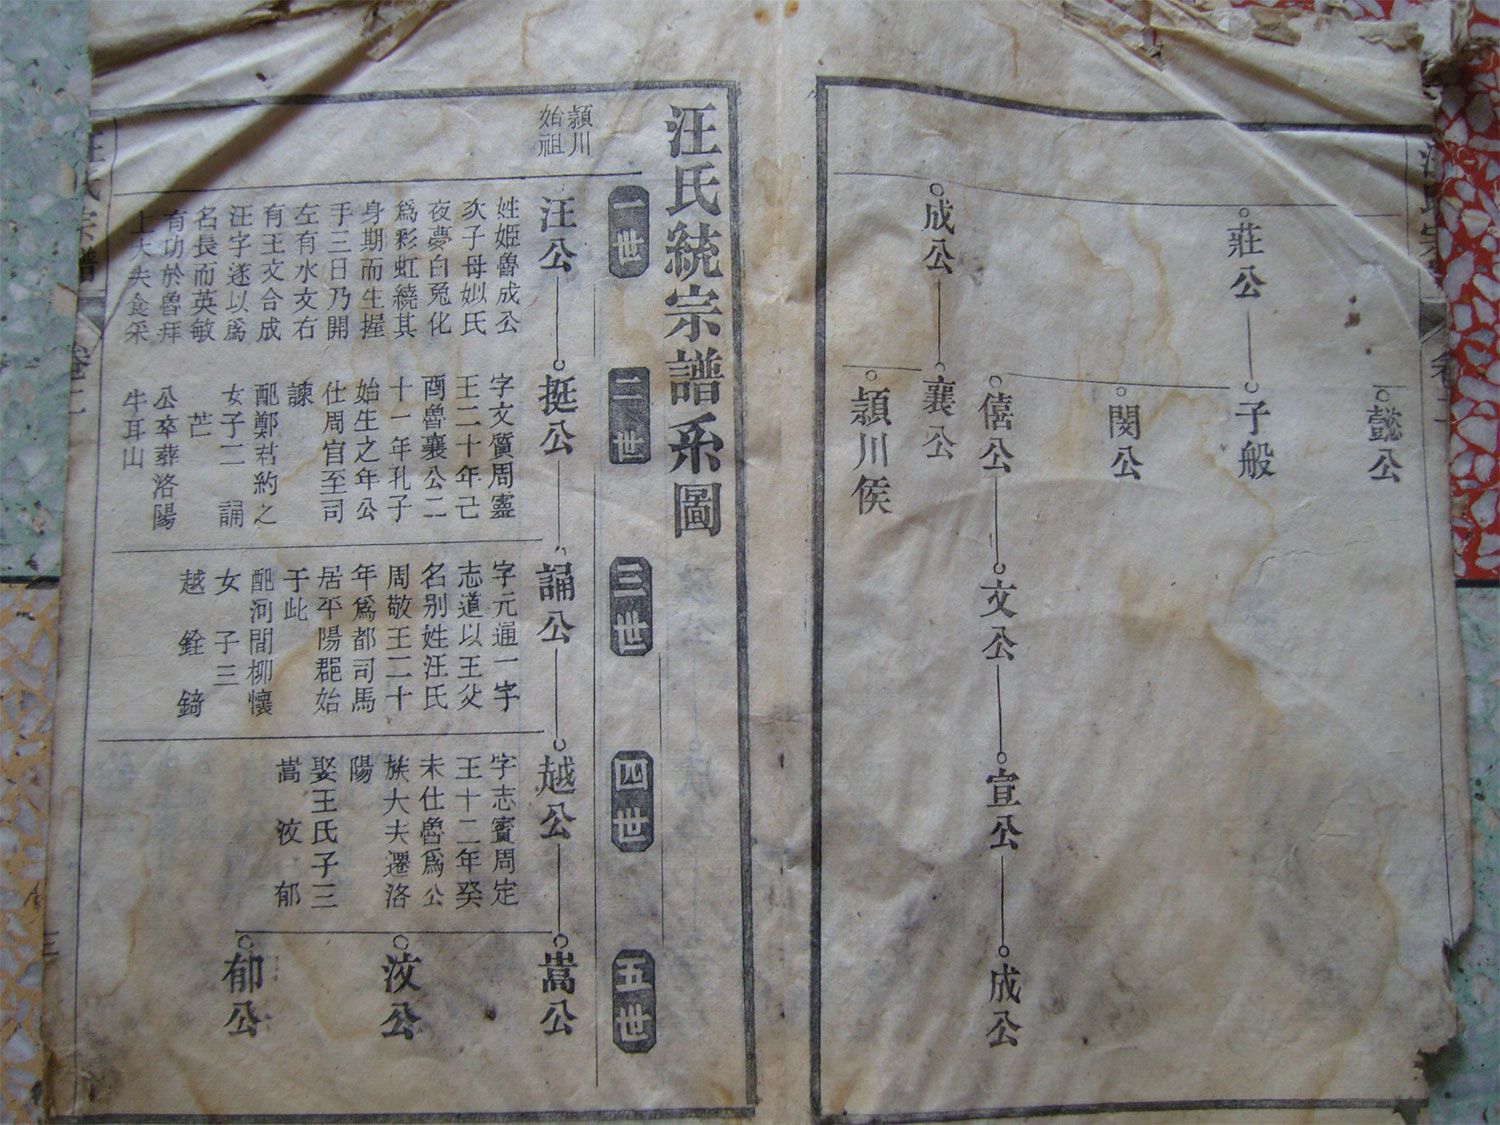 莊公
子般
懿公
閔公
僖公
文公
宣公
成公
成公
襄公
潁川侯
汪氏統宗譜系圖
一世
二世
三世
四世
五世
潁川
始祖
汪公
姓姬魯成公
次子母姒氏
夜夢白兔化
爲彩虹繞其
身期而生握
手三日乃開
左有水文右
有王文合成
汪字遂以爲
名長而英敏
有功於魯拜
上大夫食采
挺公
字文質周靈
王二十年己
酉魯襄公二
十一年孔子
始生之年公
仕周官至司
諫
配鄭君約之
女子二 誦
芒
公卒葬洛陽
牛耳山
誦公
字元通一字
志道以王父
名别姓汪氏
周敬王二十
年爲都司馬
居平陽郡始
于此
配河間柳懷
女 子三
越 銓 錡
越公
字志賓周定
王十二年癸
未仕魯爲公
族大夫遷洛
陽
娶王氏子三
嵩 汶 郁
嵩公
汶公
郁公
汪氏宗譜
卷二
三